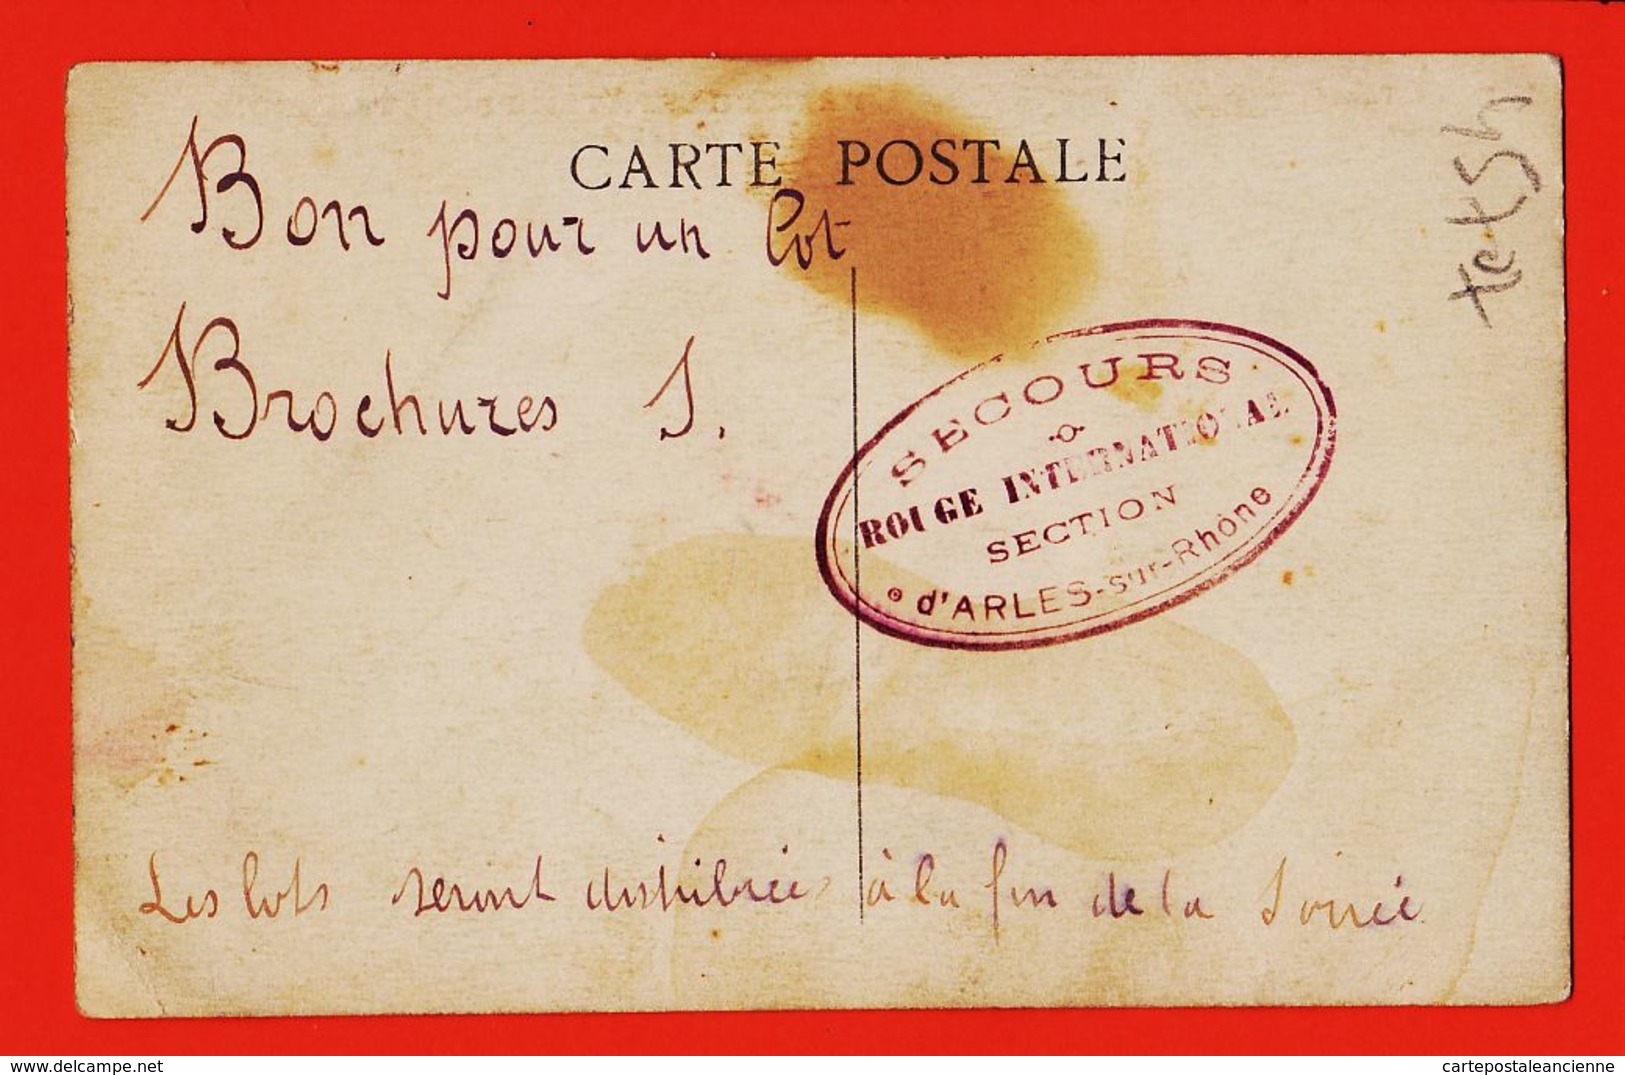 CARTE POSTALE
Bon pour un lot
Brochures S.
SECOURS
ROUGE INTERNATIONAL
SECTION
d'ARLES-sur-Rhône
Les lots seront distribués à la fin de la Soirée
delcampe.net
cartepostaleancienne